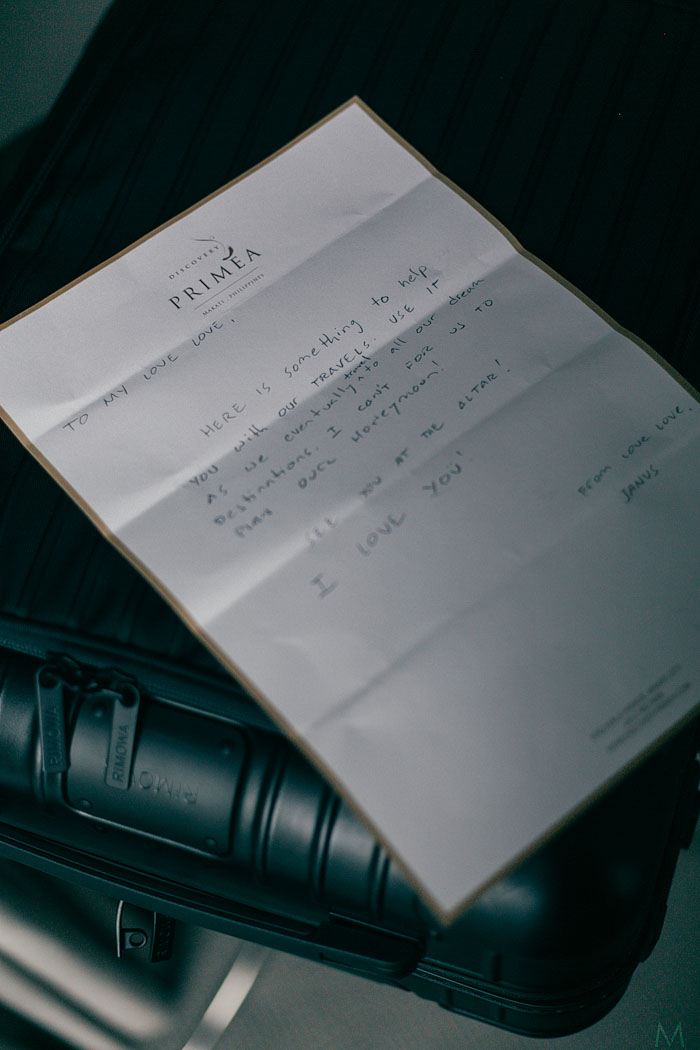 DISCOVERY
PRIMEA
MAKATI, PHILIPPINES
TO MY LOVE LOVE,
HERE IS something to help
you with our TRAVELS. USE IT
as we eventually ^travel to all our dream
Destinations. I can't FOR US TO
Plan our Honeymoon!
SEE YOU AT THE ALTAR!
I LOVE YOU!
From Love Love,
JANUS
RIMOWA
RIMOWA
RIMOWA
M